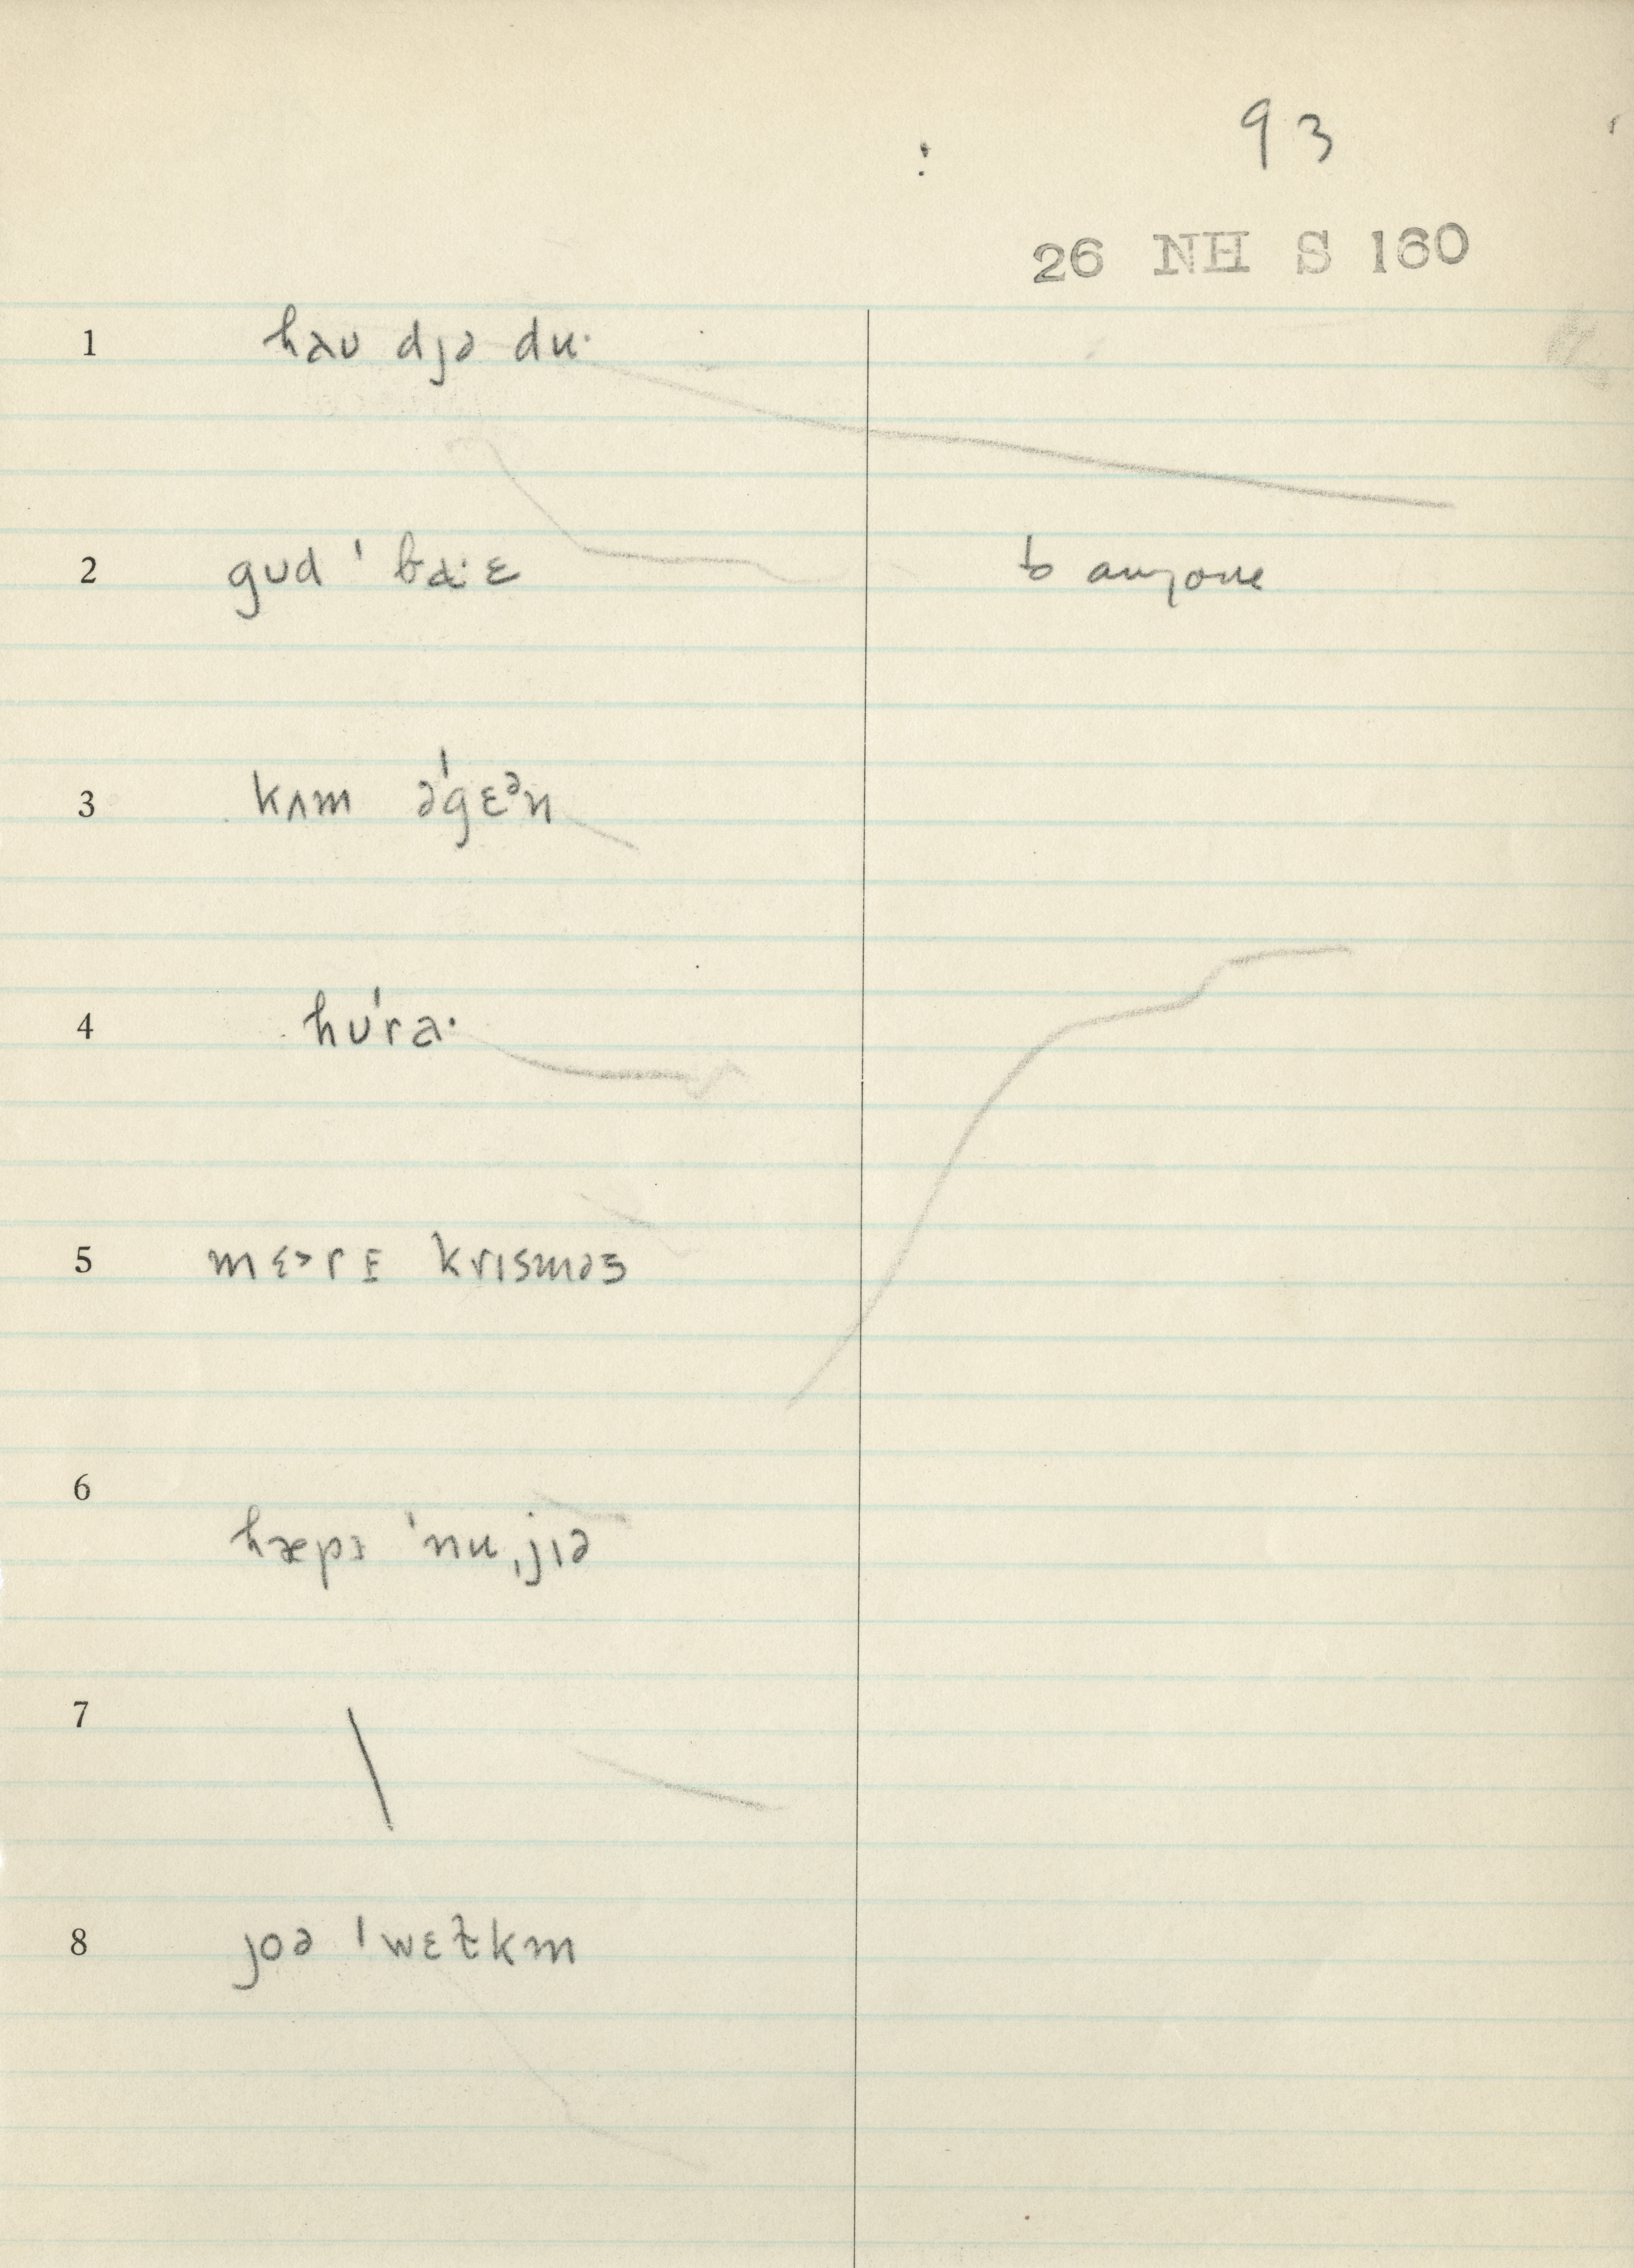 93
26 NH S 160
1 haʊ djə du·
2 gʊd ˈba·ɛ to anyone
3 kʌm əˈgɛᵊn
4 hʊˈra·
5 mɛ>rɪ krɪsməs
6
hæpɪ ˈnuˌjɪə
7 \
8 joə ˈwɛɫkm